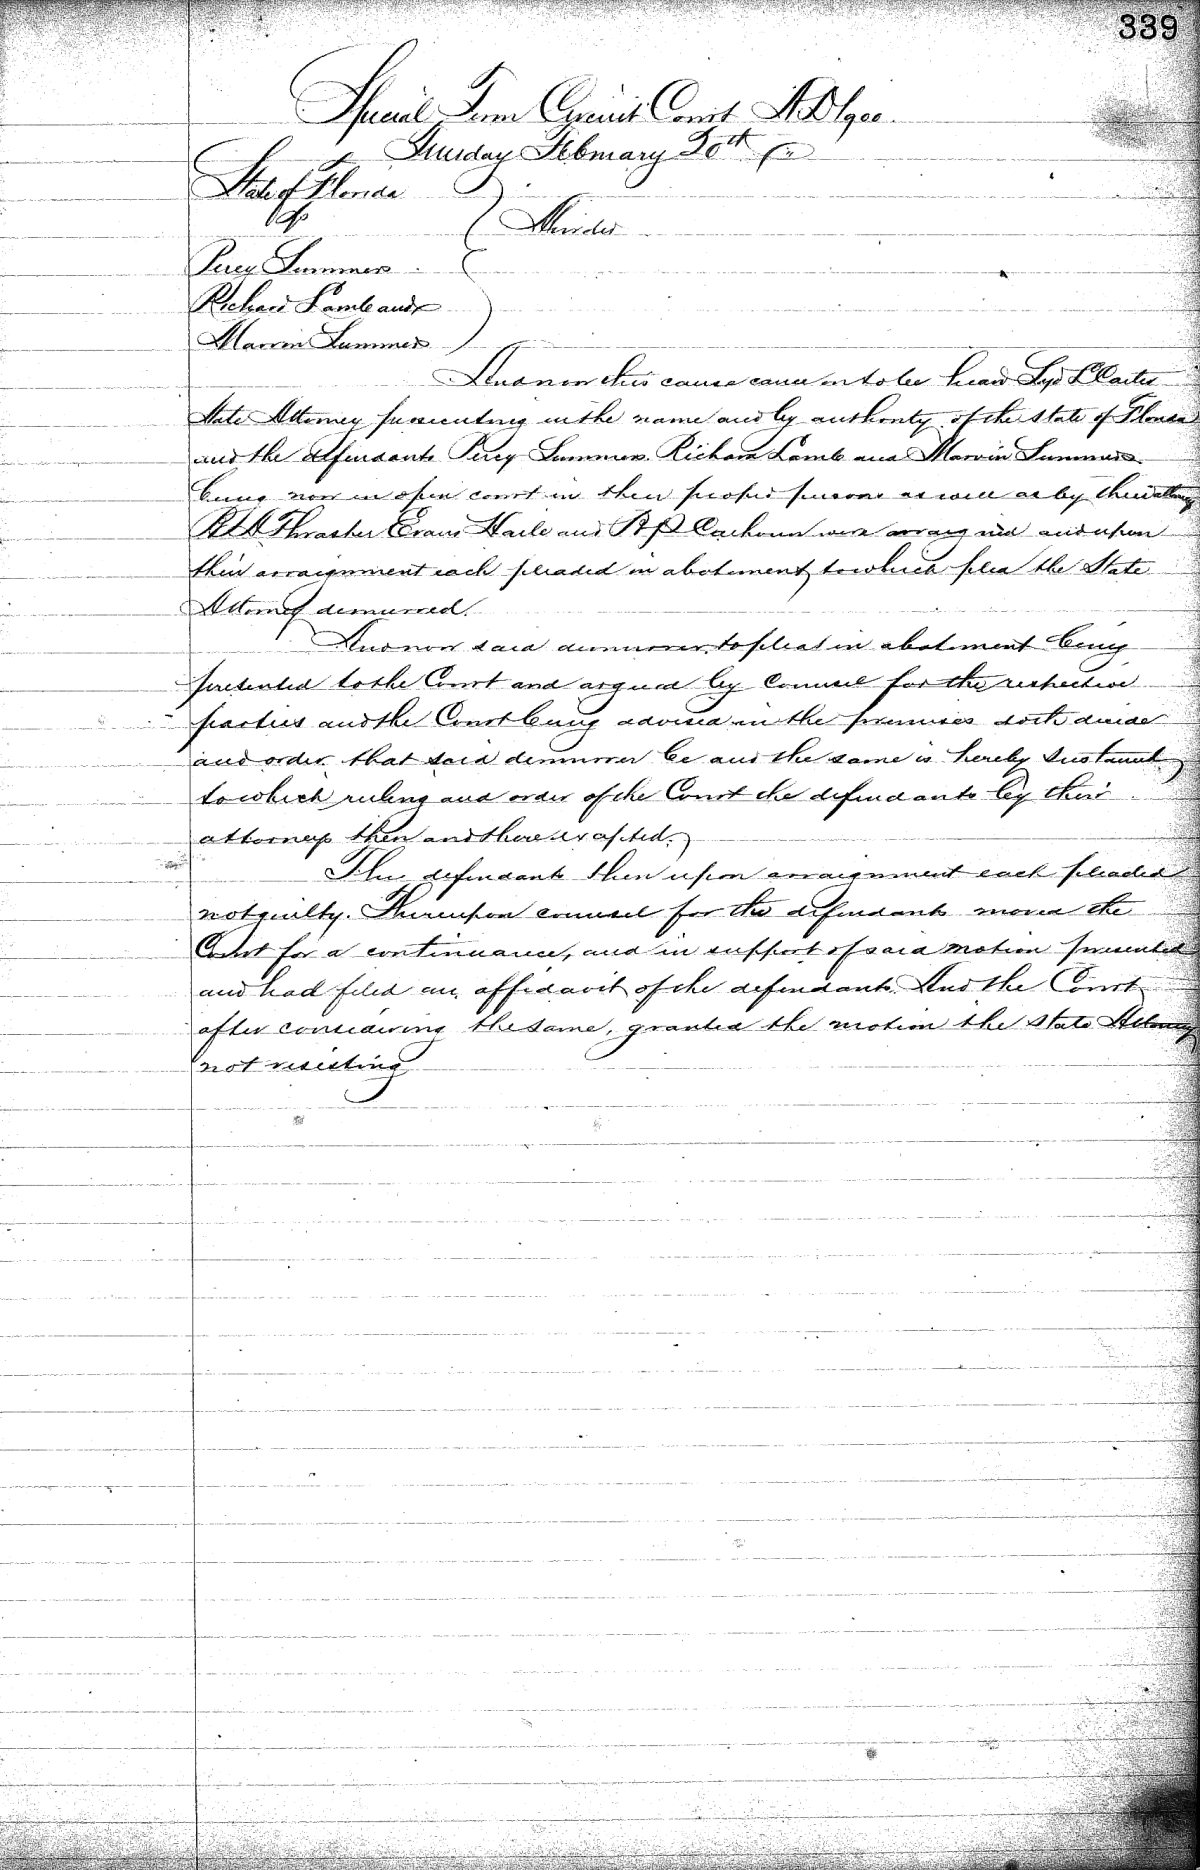 339
Special Term Circuit Court A.D. 1900.
Tuesday February 20th
State of Florida
vs
Murder
Percy Summers
Richard Lamb and
Marvin Summers
And now this cause came on to be heard Syd L Carter
State Attorney prosecuting in the name and by authority of the State of Florida
and the defendants Percy Summers. Richard Lamb and Marvin Summers
being now in open court in their proper persons as well as by their attorneys
Thrasher Evans Haile and Calhoun were arraigned and upon
their arraignment each pleaded in abatement, to which plea the State
Attorney demurred.
And now said demurrer, to pleas in abatement being
presented to the Court and argued by Counsel for the respective
parties and the Court being advised in the premises doth decide
and order that said demurrer be and the same is hereby sustained,
to which ruling and order of the Court the defendants by their
attorneys then and there excepted.
The defendants then upon arraignment each pleaded
not guilty. Thereupon counsel for the defendants moved the
Court for a continuance, and in support of said motion presented
and had filed an affidavit of the defendants. And the Court
after considering the same, granted the motion the State Attorney
not resisting